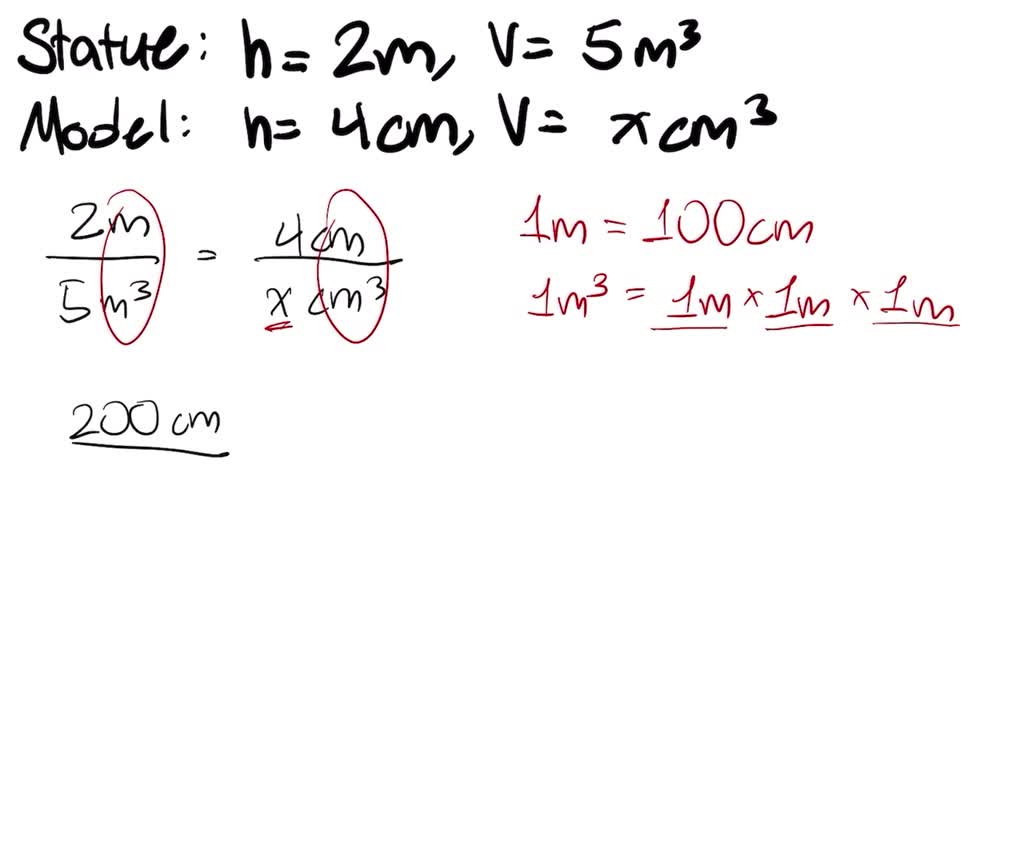 Statue: h = 2m, V = 5m³
Model: h = 4cm, V = x cm³
2m / 5m³ = 4cm / x cm³
1m = 100cm
1m³ = 1m × 1m × 1m
200 cm